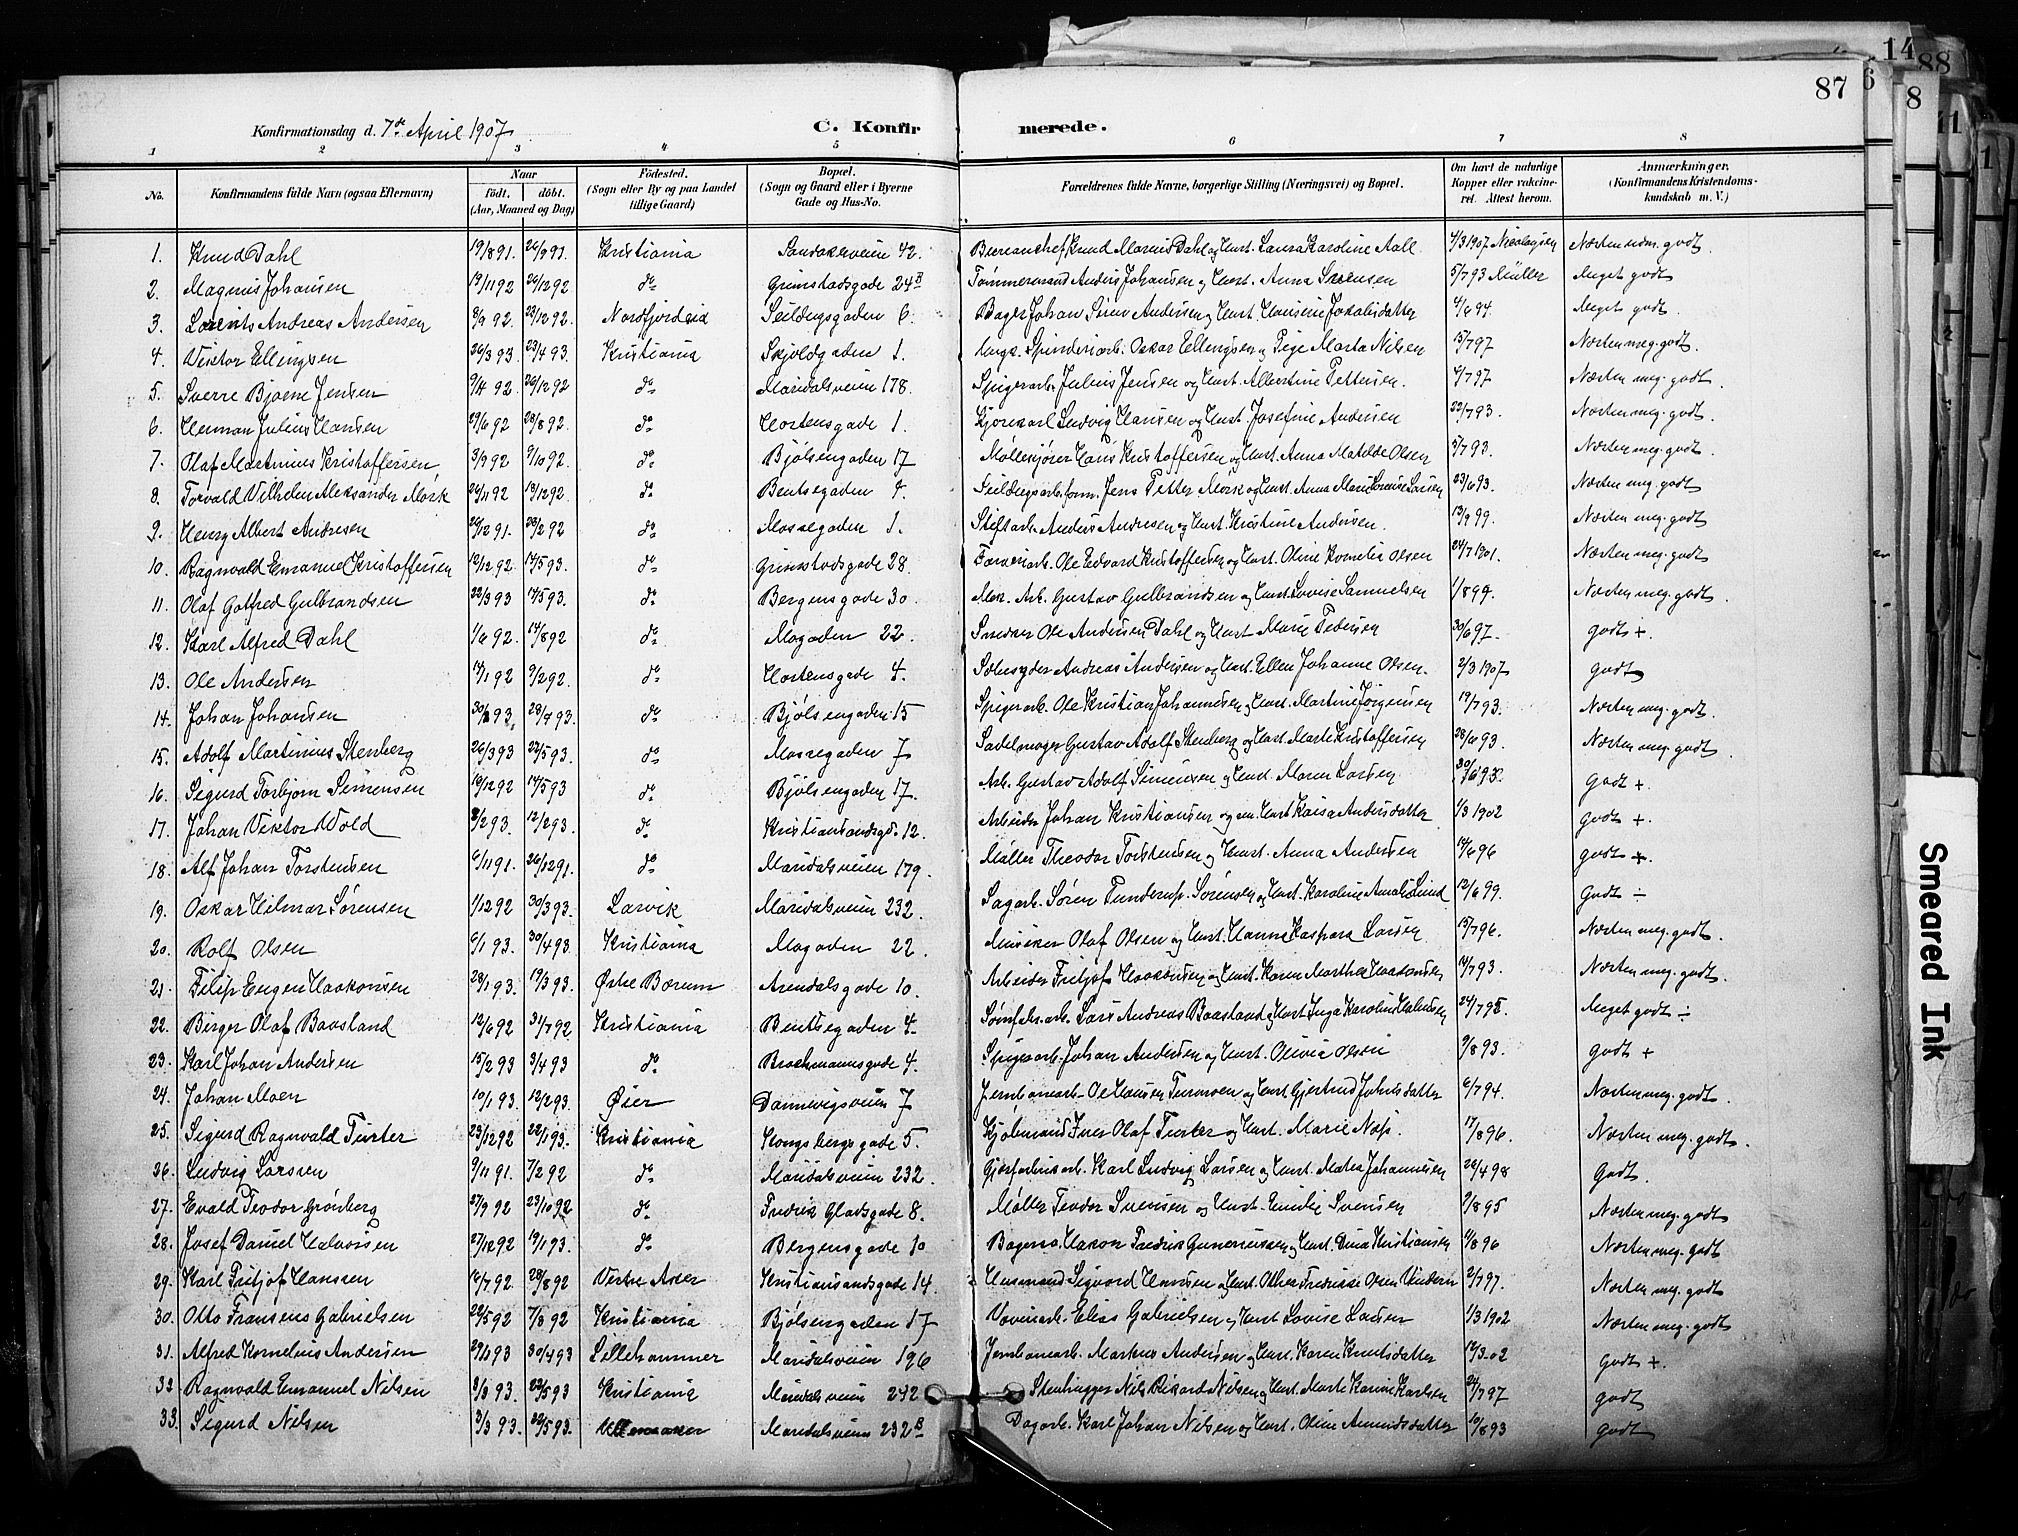 14
88
87
6
8
11
1
Konfirmationsdag d. 7de April 1907 C. Konfirmerede.
1 2 3 4 5 6 7 8
No. Konfirmandens fulde Navn (ogsaa Efternavn) Naar født. døbt. (Aar, Maaned og Dag) Fødested. (Sogn eller By og paa Landet tillige Gaard) Bopæl. (Sogn og Gaard eller i Byerne Gade og Hus-No. Forældrenes fulde Navne, borgerlige Stilling (Næringsvei) og Bopæl. Om havt de naturlige Kopper eller vakcineret. Attest herom. Anmærkninger, (Konfirmandens Kristendomskundskab m. V.)
1. Knud Dahl 19/8 91. 26/9 91. Kristiania Sandakerveien 42. Bureauchef Knud Marius Dahl og Hust. Laura Karoline Aall 4/3 1907 Nicolaysen Næsten udm. godt.
2. Magnus Johansen 26/12 92 do Grimstadsgade 24B Tømmermand Anders Johansen og Hust. Anna Sørensen 5/7 93 Müller Meget godt
3. Lorents Andreas Andersen 8/9 92. 23/12 92. Nordfjordeid Seildugsgaden 6. Bager Johan Andersen og Hust. 4/6 94. Meget godt.
4. Viktor Ellingsen 26/3 93 23/4 93. Kristiania Skjoldgaden 1. Ungk. Spinderiarb. Oskar Ellingsen og Pige Marta Nilsen 15/7 97 Næsten meg. godt.
5. Sverre Bjarne Jensen 9/4 92 26/12 92 do Maridalsveien 178. Spigerarb. Julius Jensen og Hust. Albertine Pettersen. 6/7 97 Næsten meg. godt.
6. Herman Julius Hansen 29/6 92 28/8 92. do Hortensgade 1. Kjørekarl Ludvig Hansen og Hust. Josefine Andersen 22/7 93. Næsten meg. godt.
7. Olaf Martinius Kristoffersen 3/9 92 9/10 92. do Bjølsengaden 17 Møllekjører Hans Kristoffersen og Hust. Anna Matilde Olsen 5/7 93. Næsten meg. godt.
8. Torvald Vilhelm Aleksander Mørk 26/11 92 do Bentsegaden 4. Seildugsarb.form. Jens Petter Mørk og Hust. Anna Marie Lovise Larsen 23/6 93. Næsten meg. godt
9. Henry Albert Andresen 29/12 91. 28/2 92 do Mossegaden 1. Stiftarb. Anders Andresen og Hust. Kristine Andersen. 13/9 99. Næsten meg. godt
10. Ragnvald Emanuel Kristoffersen 16/12 92. 14/5 93. do Grimstadsgade 28. Farveriarb. Ole Edvard Kristoffersen og Hust. Oline Kornelia Olsen 24/7 1901. Næsten meg. godt
11. Olaf Gotfred Gulbrandsen 22/3 93 14/5 93. do Bergensgade 30. Mek. Arb. Gustav Gulbrandsen og Hust. Lovise Samuelsen 1/8 99. Næsten meg. godt.
12. Karl Alfred Dahl 1/6 92. 14/8 92 do Mogaden 22. Snedker Ole Andersen Dahl og Hust. Marie Pedersen 30/6 97. godt +.
13. Ole Andersen 14/1 92 9/2 92. do Hortensgade 4. Andreas Andersen og Hust. Ellen Johanne Olsen. 2/3 1907 godt
14. Johan Johansen 93. 28/4 93. do Bjølsengaden 15 Spigerarb. Ole Kristian Johannesen og Hust. Martine Jørgensen 19/7 93. Næsten meg. godt.
15. Adolf Martinius Stenberg 26/3 93 22/5 93. do Mossegaden 7 Sadelmager Gustav Adolf Stenberg og Hust. Marte Kristoffersen 28/6 93. Næsten meg. godt
16. Sigurd Torbjørn Simensen 19/12 92 14/5 93 do Bjølsengaden 17. Arb. Gustav Adolf Simensen og Hust. Maren Larsen godt +.
17. Johan Viktor Wold 8/2 93. 12/2 93. do Kristiansandsgd. 12. Arbeider Johan Kristiansen og Hust. Kaisa Andersdatter 1/3 1902 godt +.
18. Alf Johan Torstensen 6/11 91. 26/12 91. do Maridalsveien 179. Møller Theodor Torstensen og Hust. Anna Andersen 14/6 96 godt +.
19. Oskar Hilmar Sørensen 1/12 92 30/3 93. Larvik Maridalsveien 232. Sagarb. Søren Sørensen og Hust. Karoline Amalie Lund 12/6 99. Godt ÷
20. Rolf Olsen 6/1 93. 30/4 93 Kristiania Mogaden 22. Musiker Olaf Olsen og Hust. Hanna Kaspara Larsen 15/7 96. Næsten meg. godt.
21. Filip Eugen Haakonsen 28/1 93. 19/3 93. Østre Bærum Arendalsgade 10. Arbeider Fritjof Haakonsen og Hust. Karen Marthea Haakonsen 14/7 93. Næsten meg. godt.
22. Birger Olaf Baasland 12/6 92 31/7 92. Kristiania Bentsegaden 4. Lars Andreas Baasland og Hust. Inga Karoline Halvorsen 24/7 95. Meget godt ÷
23. Karl Johan Andersen 15/2 93 3/4 93 do Brochmannsgade 4. Spigerarb. Johan Andersen og Hust. Olivia Olsen 9/8 93. godt +
24. Johan Moen 10/1 93. 12/2 93. Øier Dannevigsveien 7 Jernbanearb. Ole Hansen og Hust. Gjertrud Johnsdatter 6/7 94. Næsten meg. godt.
25. Sigurd Ragnvald Turter 23/12 92 22/1 93. Kristiania Kongsbergsgade 5. Kjøbmand Iver Olaf Turter og Hust. Marie Næss. 17/8 96. Næsten meg. godt.
26. Ludvig Larssen 9/11 91. 7/2 92 do Maridalsveien 232. Karl Ludvig Larsen og Hust. Mathea Johannesen 26/4 98 Godt.
27. Evald Teodor Grønberg 27/9 92 23/10 92 do Fredrik Gladsgade 8. Møller Teodor Svensen og Hust. Emilie Svensen 9/8 95 Næsten meg. godt
28. Josef Daniel Halvorsen 27/12 92 19/1 93. do Bergensgade 10 Bagersv. Hakon Fredrik Guneriussen og Hust. Dina Kristiansen 4/8 96 Næsten meg. godt
29. Karl Fritjof Hanssen 16/7 92 28/8 92 Vestre Aker Kristiansandsgade 14. Husmand Sigvard Hansen og Hust. Othea Fredrikke Olsen Vindern 2/7 97. Næsten meg. godt
30. Otto Fransens Gabrielsen 22/5 92 7/8 92 Kristiania Bjølsengaden 17 Væveriarb. Elias Gabrielsen og Hust. Lovise Larsen 1/3 1902 Næsten meg. godt
31. Alfred Kornelius Andersen 29/1 93 30/4 93 Lillehammer Maridalsveien 196 Jernbanearb. Markus Andersen og Hust. Karen Knutsdatter 02 godt +.
32. Ragnvald Emanuel Nilsen 3/3 93. 22/5 93 Kristiania Maridalsveien 242 Stenhugger Nils Rikard Nilsen og Hust. Marte Karine Karlsen 24/7 97 godt
33. Sigurd Nilsen 3/3 93. 22/5 93. Maridalsveien 232B Dagarb. Karl Johan Nilsen og Hust. Oline Amundsdatter 10/8 93 godt
Smeared Ink